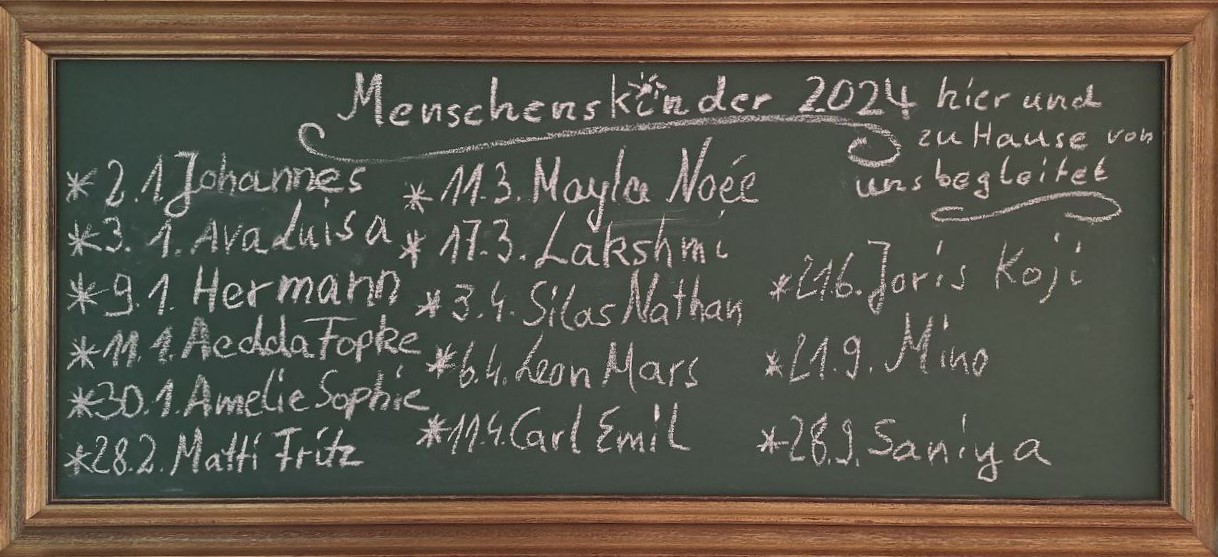 Menschenskinder 2024 hier und
zu Hause von
uns begleitet
*2.1. Johannes
*3.1. Ava Luisa
*9.1. Hermann
*11.1. Aedda Fopke
*30.1. Amelie Sophie
*28.2. Matti Fritz
*11.3. Mayla Noée
*17.3. Lakshmi
*3.4. Silas Nathan
*6.4. Leon Mars
*11.4. Carl Emil
*21.6. Joris Koji
*21.9. Mino
*28.9. Saniya